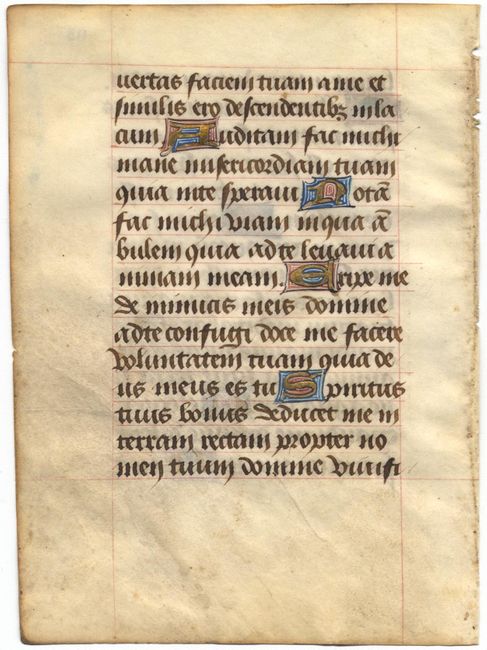 uertas faciem tuam a me et
similis ero descendentibꝫ in la
cum Auditam fac michi
mane misericordiam tuam
quia in te speraui Notā
fac michi viam in qua ā
bulem quia ad te leuaui a
nimam meam. Eripe me
de inimicis meis domine
ad te confugi doce me facere
voluntatem tuam quia de
us meus es tu Spiritus
tuus bonus deducet me in
terram rectam propter no
men tuum domine viuifi